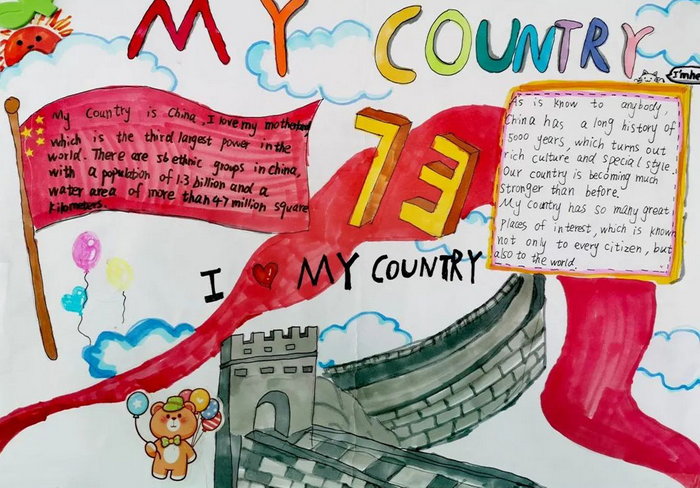 MY COUNTRY
I'm he
My Country is China, I love my motherland
which is the third largest power in the
world. There are 56 ethnic groups in china,
with a population of 1.3 billion and a
water area of more than 47 million square
kilometers.
73
As is know to anybody,
China has a long history of
5000 years, which turns out
rich culture and special style.
Our country is becoming much
stronger than before.
My Country has so many great
places of interest, which is known
not only to every citizen, but
also to the world.
I MY COUNTRY